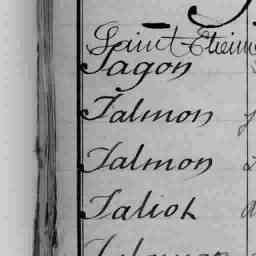 Saint-Etienne
Tagon
Talmon
Talmon
Taliot